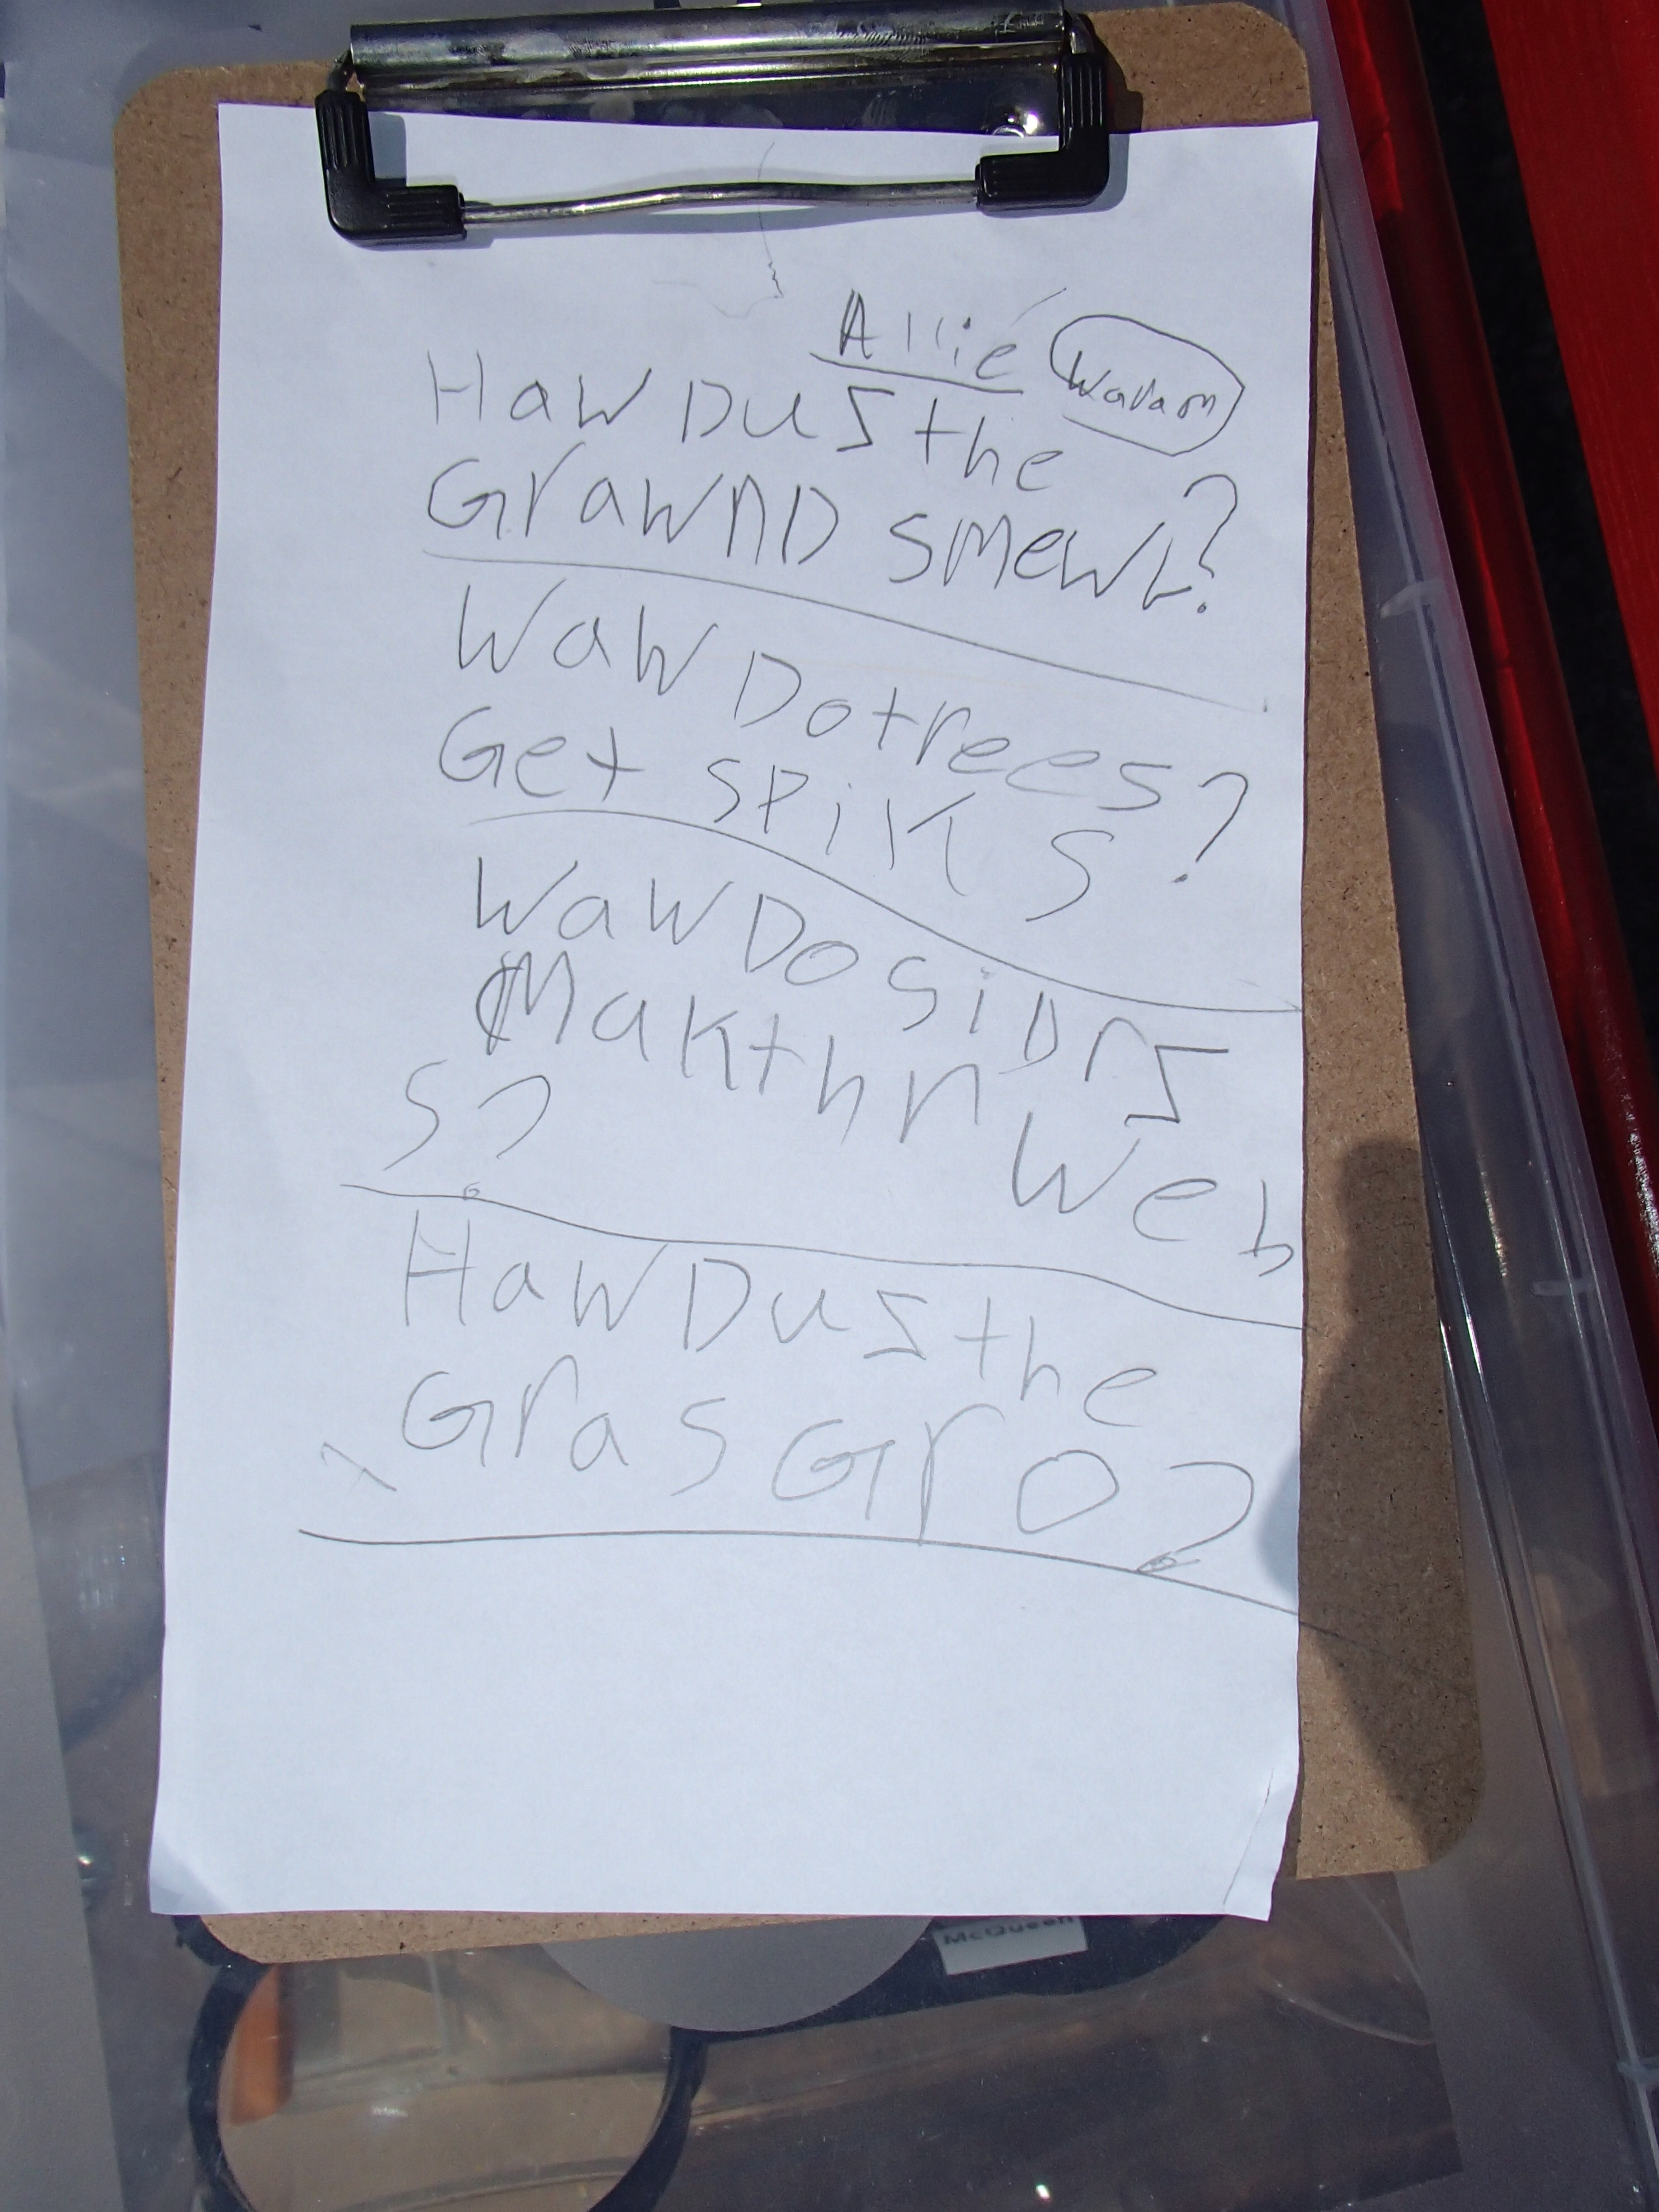 Allie
Wavam
Haw Dus the
GrawnD smewL?
Waw Do trees
Get spiks?
Waw Do siDrs
Makthn Web
s?
Haw Dus the
Gras Gro?
McQueen